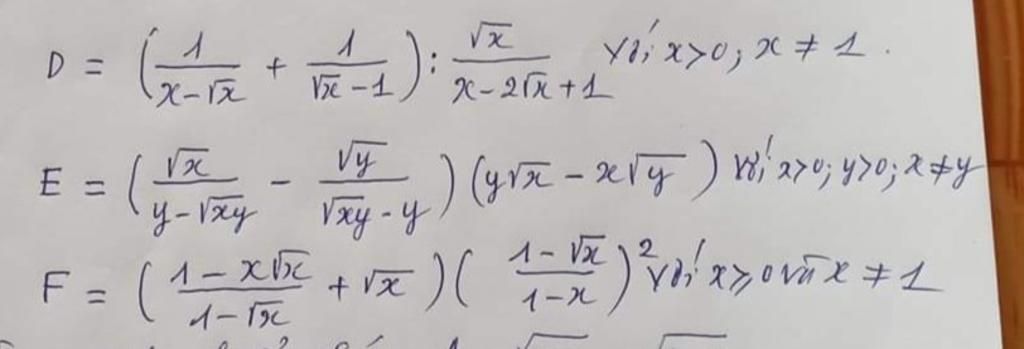 D = (1/(x-√x) + 1/(√x-1)) : √x/(x-2√x+1) với x>0; x ≠ 1.
E = (√x/(y-√xy) - √y/(√xy-y))(y√x - x√y) với x>0; y>0; x≠y
F = ((1-x√x)/(1-√x) + √x)((1-√x)/(1-x))² với x≥0 và x ≠ 1